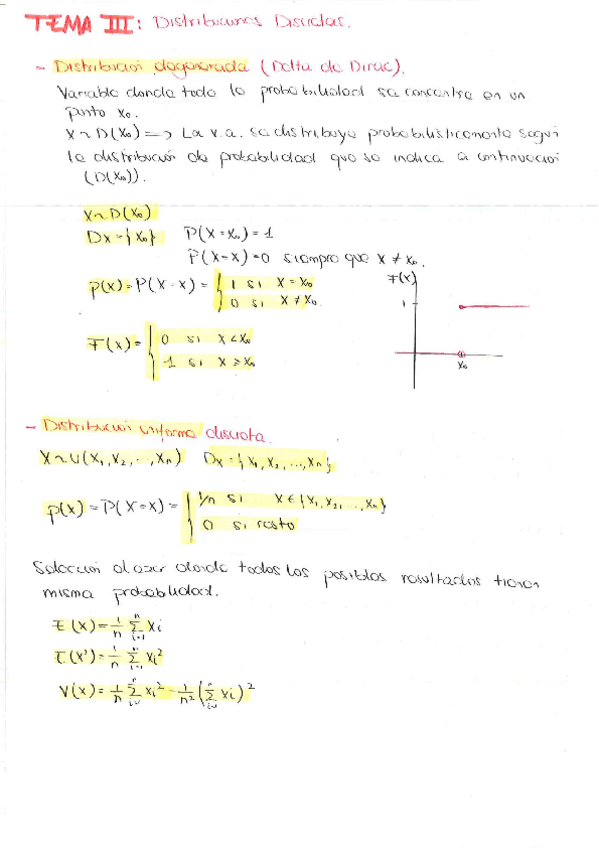 TEMA III: Distribuciones Discretas.
- Distribución degenerada (Delta de Dirac).
Variable donde toda la probabilidad se concentra en un
punto x₀.
X ~ D(x₀) => La v.a. se distribuye probabilísticamente según
la distribución de probabilidad que se indica a continuación
(D(x₀)).
X ~ D(x₀)
Dx = {x₀} P(X=x₀) = 1
P(X=x) = 0 siempre que x ≠ x₀.
p(x) = P(X=x) = { 1 si x = x₀
0 si x ≠ x₀
F(x)
1
x₀
F(x) = { 0 si x < x₀
1 si x ≥ x₀
- Distribución uniforme discreta.
X ~ U(x₁, x₂, ..., xₙ) Dx = {x₁, x₂, ..., xₙ}
p(x) = P(X=x) = { 1/n si x ∈ {x₁, x₂, ..., xₙ}
0 si resto
Selección al azar donde todos los posibles resultados tienen
misma probabilidad.
E(x) = 1/n ∑ᵢ₌₁ⁿ xᵢ
E(x²) = 1/n ∑ᵢ₌₁ⁿ xᵢ²
V(x) = 1/n ∑ᵢ₌₁ⁿ xᵢ² - 1/n² (∑ᵢ₌₁ⁿ xᵢ)²